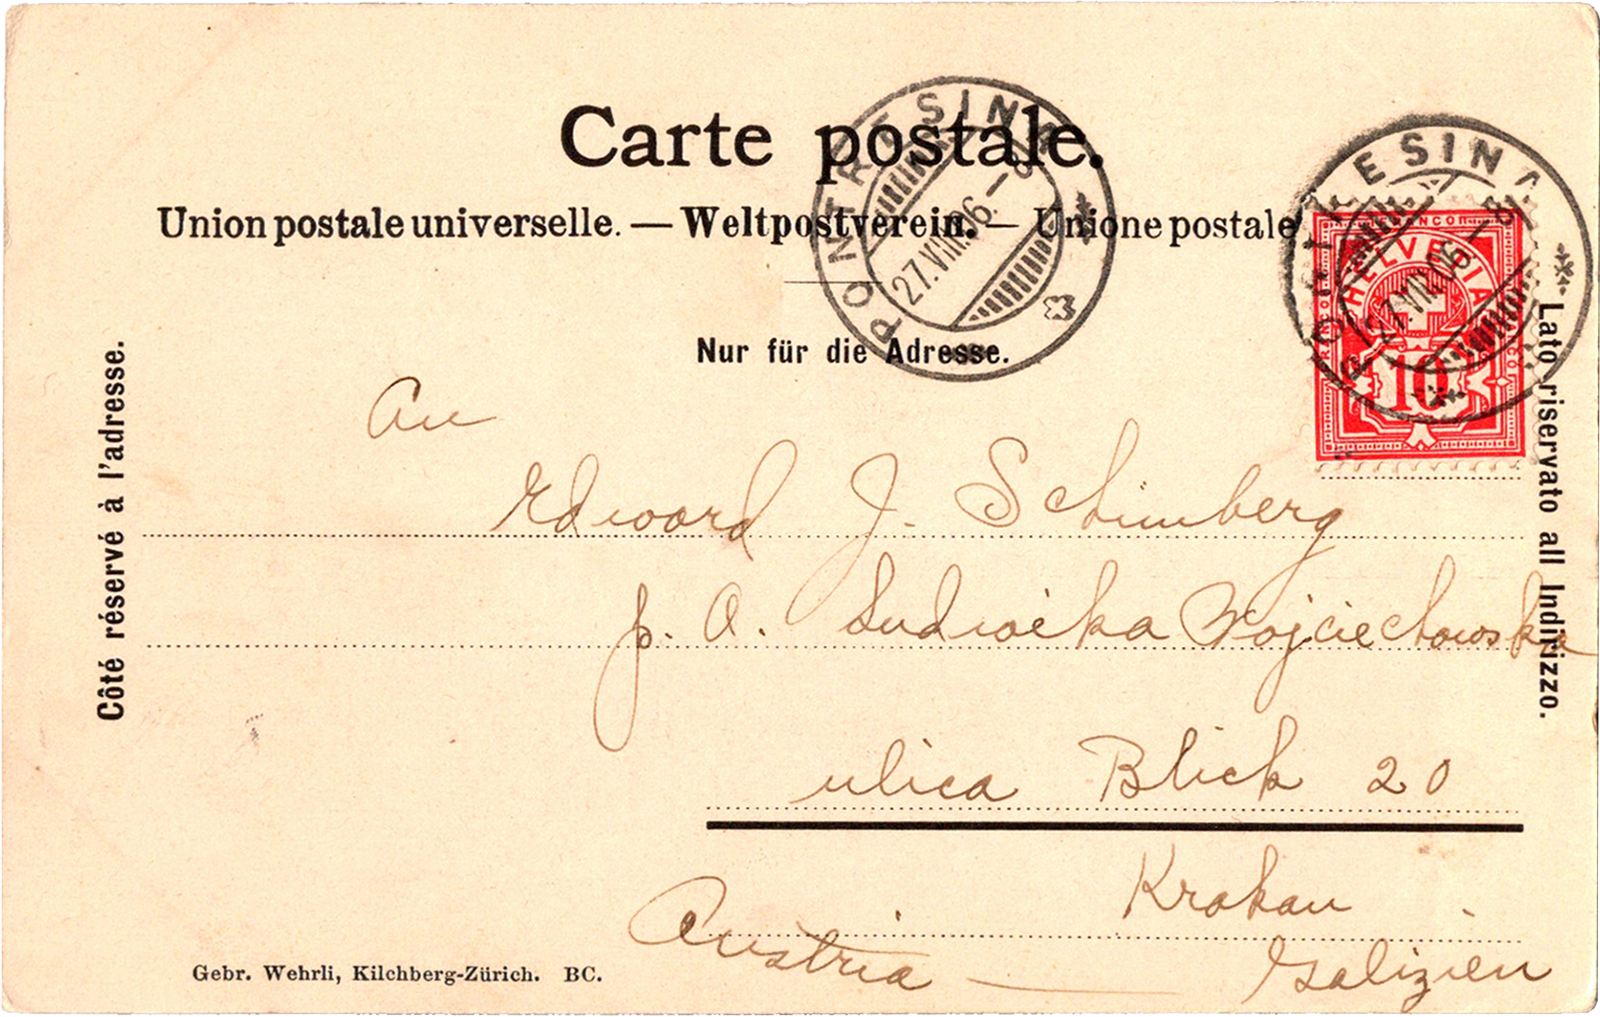 Carte postale.
Union postale universelle. — Weltpostverein. — Unione postale
Nur für die Adresse.
Côté réservé à l'adresse.
Lato riservato all Indirizzo.
PONTRESINA
27.VIII.06.–8
PONTRESINA
27.VIII.06–8
FRANCO
HELVETIA
10
An
Edward J. Schimberg
p. A. Ludwika Wojciechowska
ulica Blich 20
Krakau
Austria — Galizien
Gebr. Wehrli, Kilchberg-Zürich. BC.